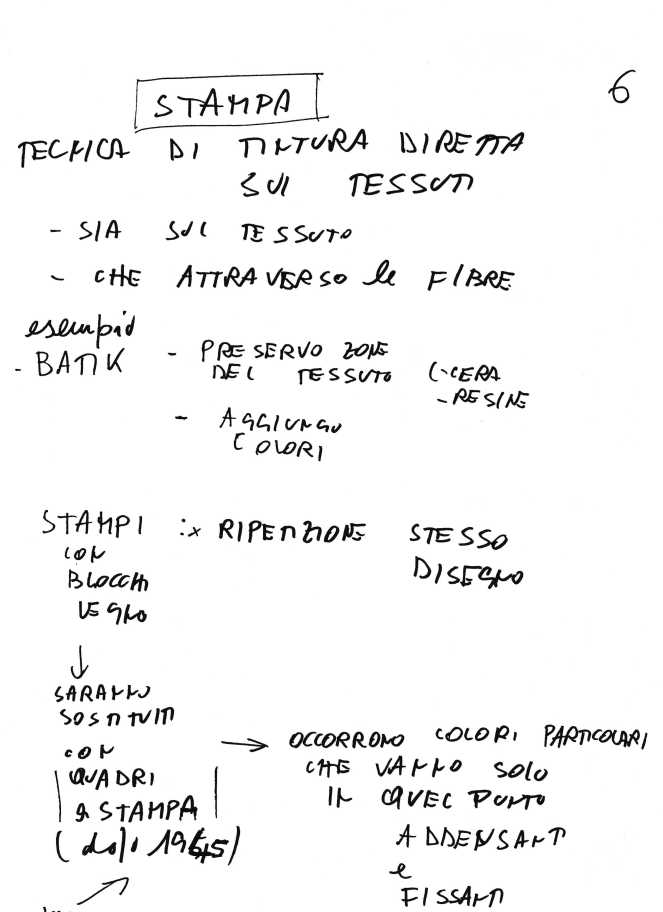 6
STAMPA
TECNICA DI TINTURA DIRETTA
SUI TESSUTI
- SIA SUL TESSUTO
- CHE ATTRAVERSO le FIBRE
esempio
- BATIK - PRESERVO ZONE
DEL TESSUTO (-CERA
- RESINE
- AGGIUNGO
COLORI
STAMPI :x RIPETIZIONE STESSO
CON DISEGNO
BLOCCHI
LEGNO
↓
SARANNO
SOSTITUITI
CON → OCCORRONO COLORI PARTICOLARI
QUADRI CHE VANNO SOLO
a STAMPA IN QUEL PUNTO
ADDENSANTI
e
FISSANTI